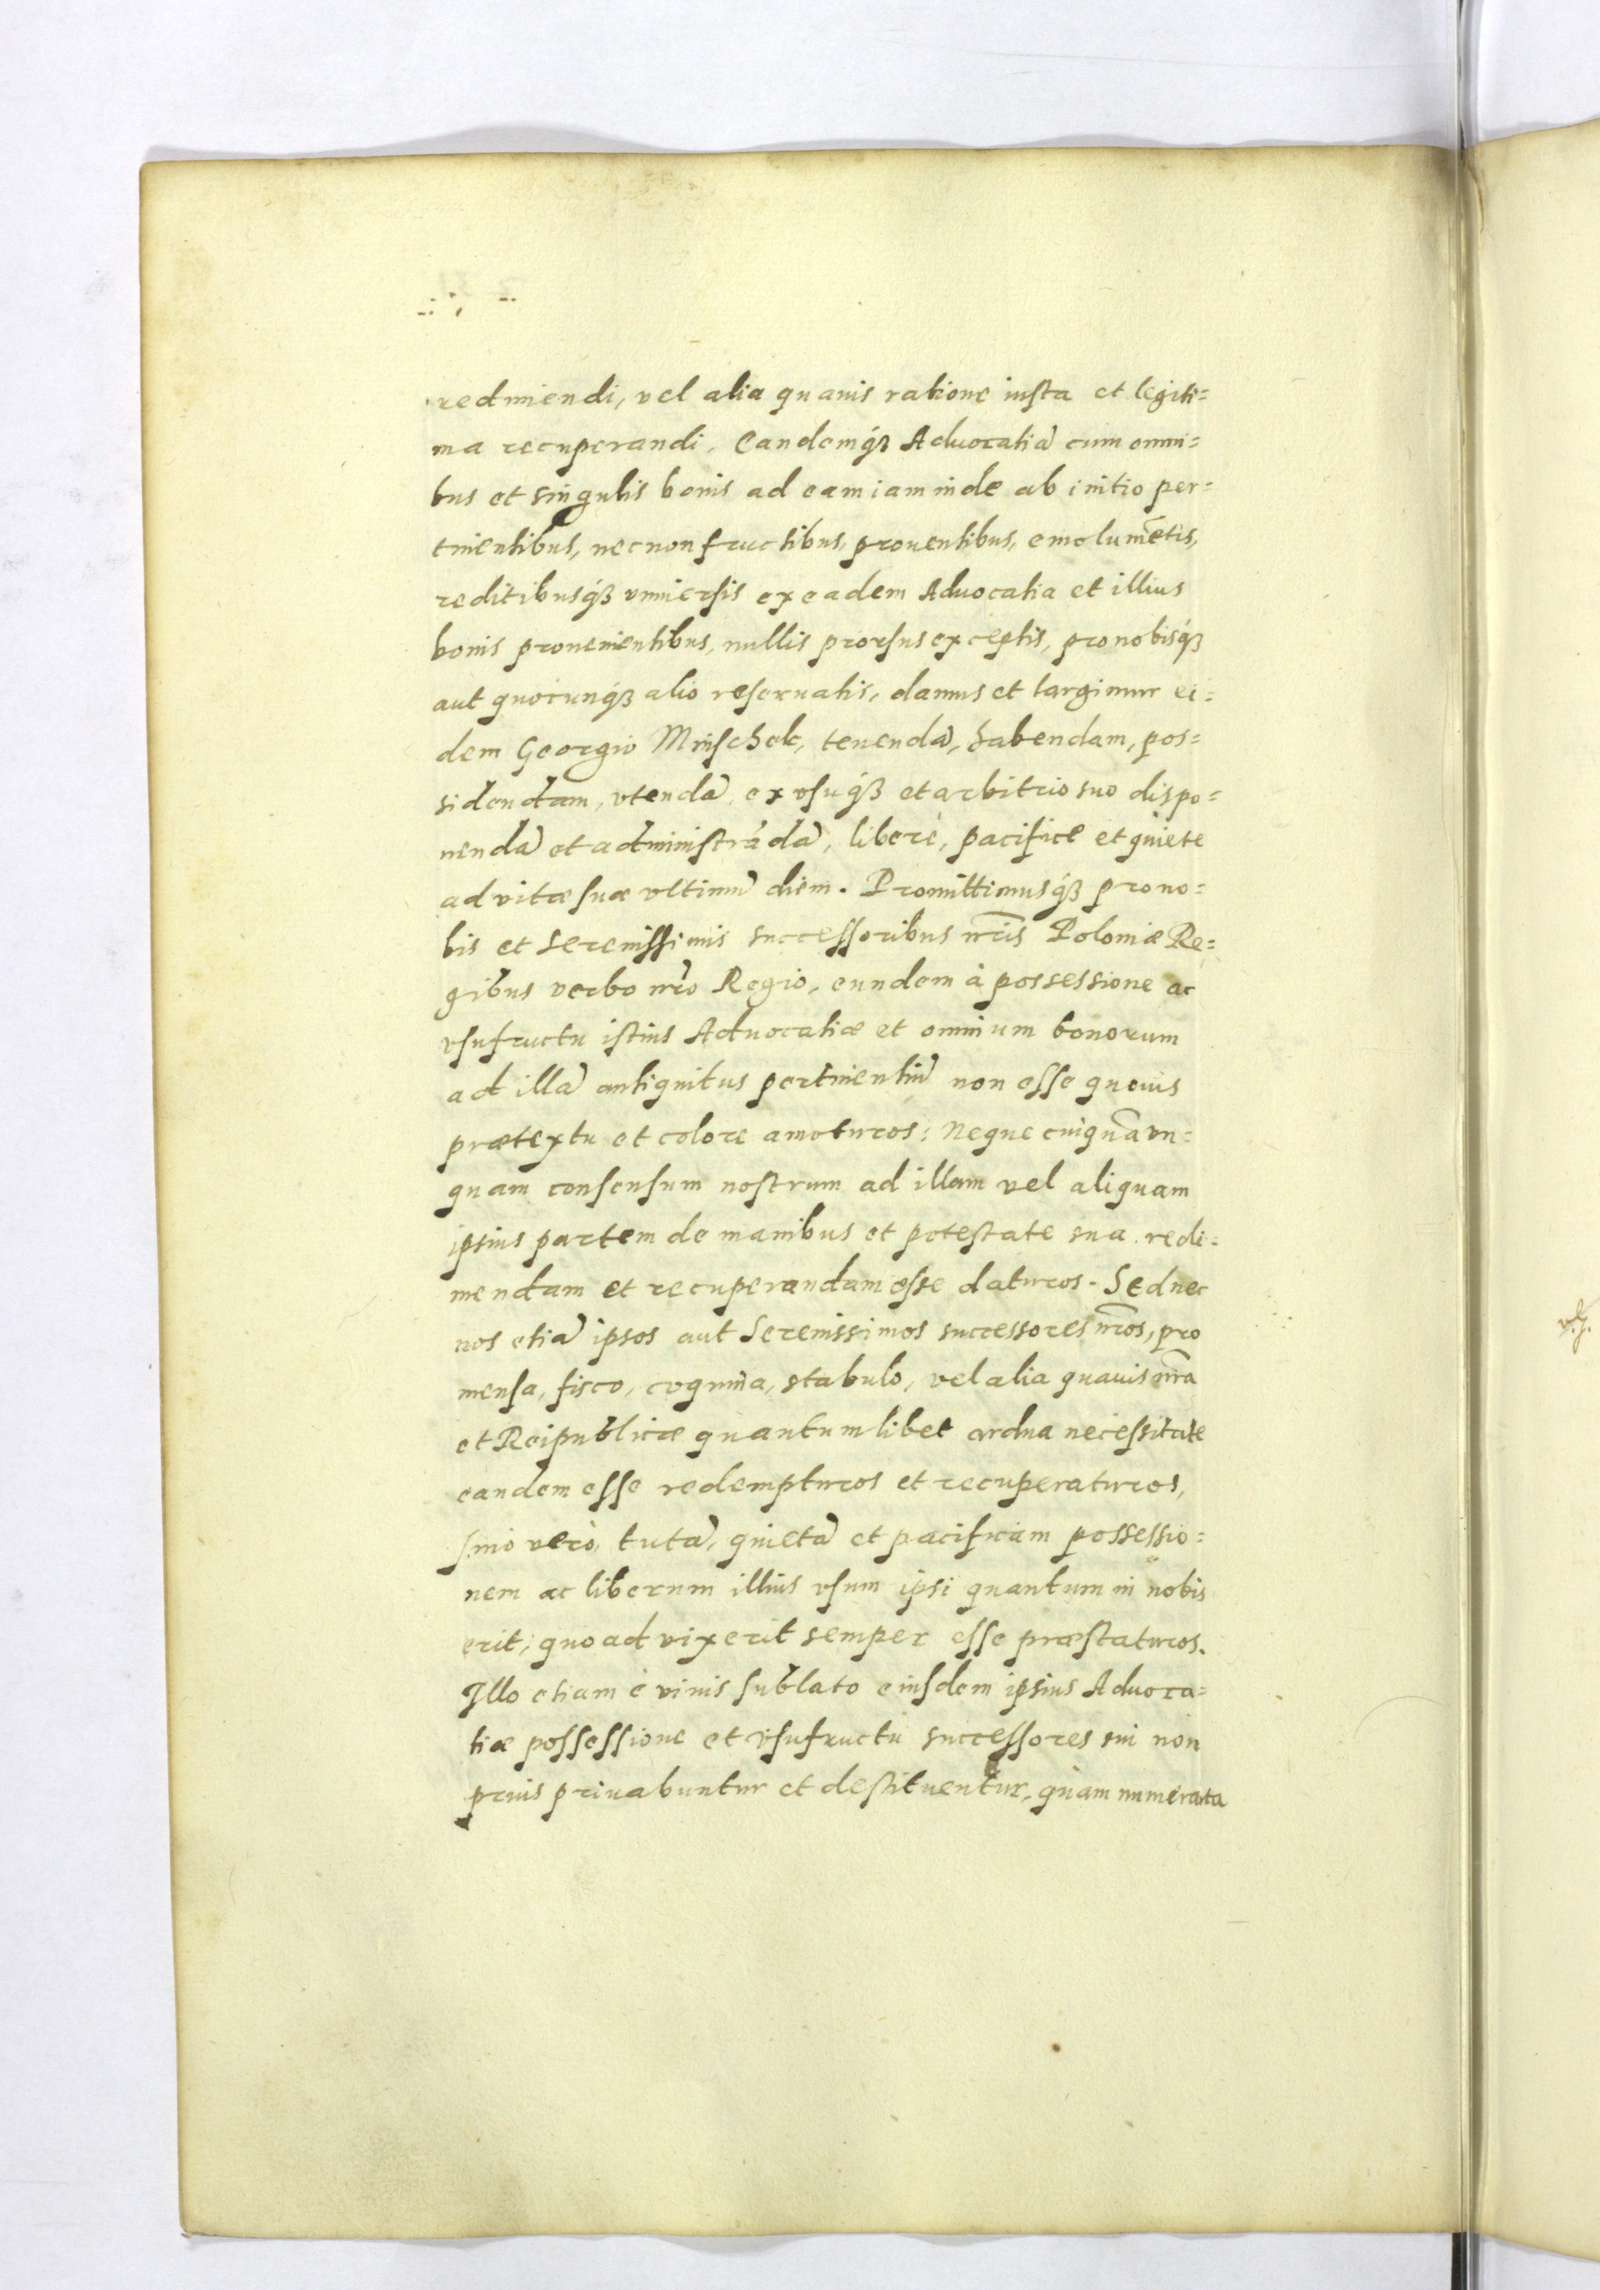 redimendi, vel alia quauis ratione iusta et legiti=
ma recuperandi. Eandemq́ꝫ Aduocatiã cum omni=
bus et singulis bonis ad eam iam inde ab initio per=
tinentibus, nec non fructibus, prouentibus, emolumẽtis,
reditibusq́ꝫ vniuersis ex eadem Aduocatia et illius
bonis prouenientibus, nullis prorsus exceptis, pro nobisq́ꝫ
aut quocunq́ꝫ alio reseruatis, damus et largimur ei=
dem Georgio Mnischek, tenendã, habendam, pos=
sidendam, vtendã, ex vsuq́ꝫ et arbitrio suo dispo=
nendã et administrãdã, liberè, pacifice et quiete
ad vitæ suæ vltimũ diem. Promittimusq́ꝫ pro no=
bis et Serenissimis successoribus nr̃is Poloniæ Re=
gibus verbo nr̃o Regio, eundem à possessione ac
vsufructu istius Aduocatiæ et omnium bonorum
ad illã antiquitus pertinentiũ non esse queuis
prætextu et colore amoturos: Neque cuiquã vn=
quam consensum nostrum ad illam vel aliquam
ipsius partem de manibus et potestate sua redi=
mendam et recuperandam esse daturos. Sed nec
nos etiã ipsos aut Serenissimos successores nr̃os, pro
mensa, fisco, coquina, stabulo, vel alia quauis nr̃a
et Reipublicæ quantumlibet ardua necessitate
eandem esse redempturos et recuperaturos,
Imo verò tutã, quietã et pacificam possessio=
nem ac liberum illius vsum ipsi quantum in nobis
erit, quoad vixerit semper esse præstaturos.
Illo etiam è viuis sublato eiusdem ipsius Aduoca=
tiæ possessione et vsufructu successores sui non
prius priuabuntur et destituentur, quàm numerata